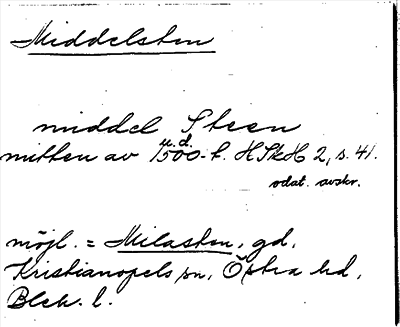 Middelsten
middel Steen
u.d.
mitten av 1500-t. HSkH 2, s. 41.
odat. avskr.
möjl. = Milasten, gd,
Kristianopels sn, Östra hd,
Blek. l.